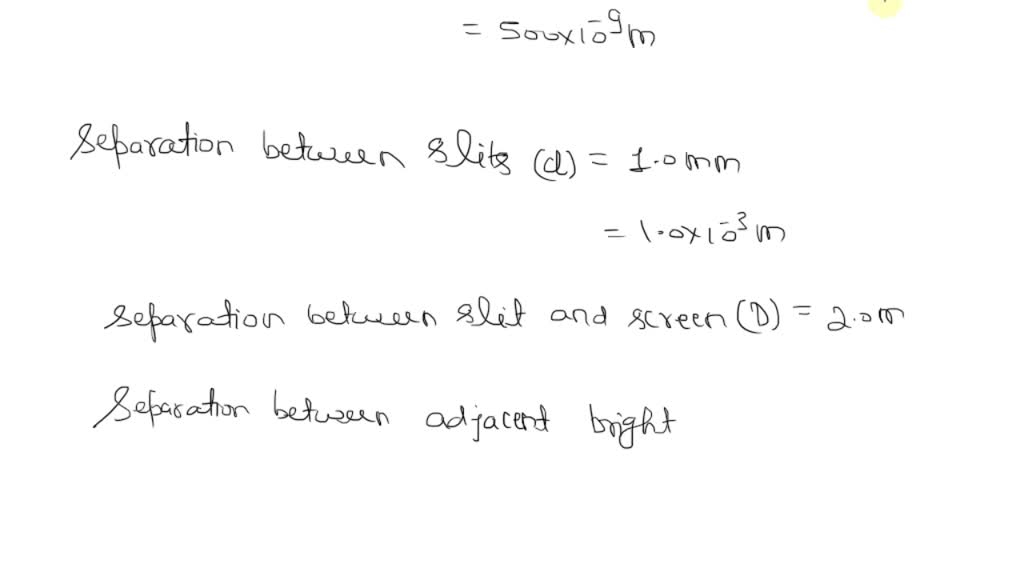 = 500x10⁻⁹m
Separation between slits (d) = 1.0mm
= 1.0x10⁻³m
separation between slit and screen (D) = 2.0m
Separation between adjacent bright